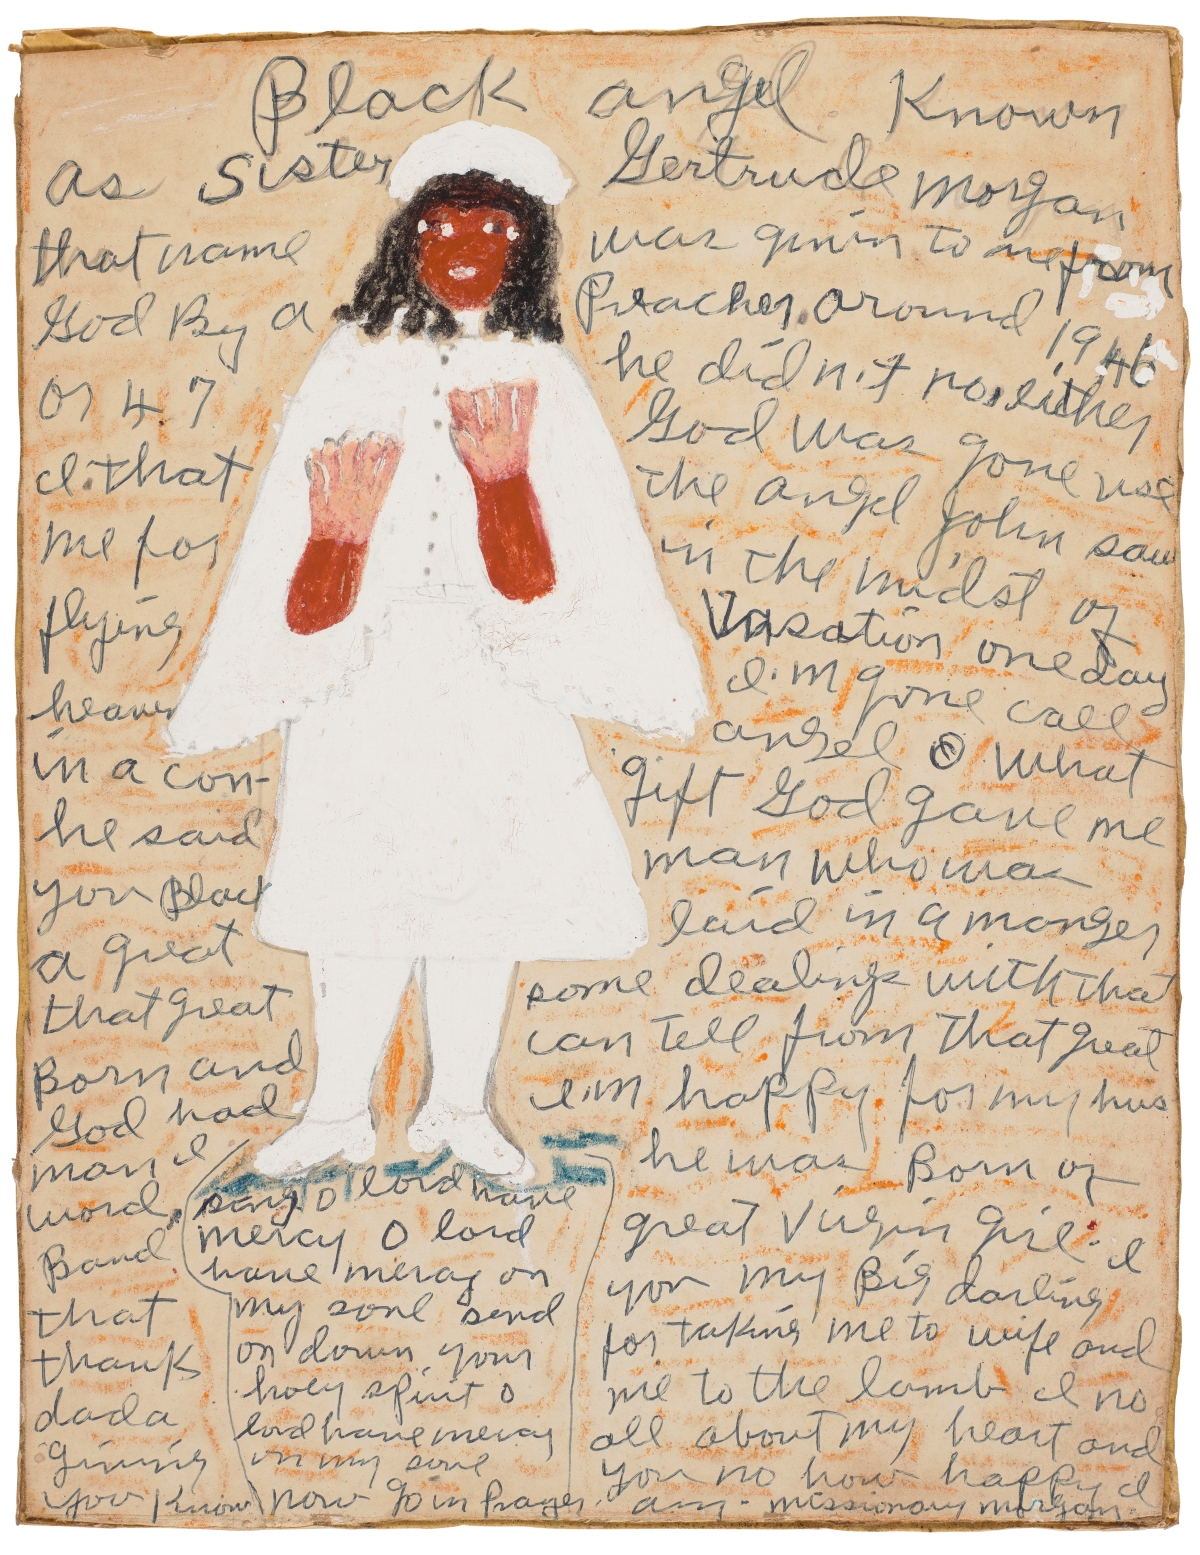 Black angel. Known
as Sister Gertrude morgan
that name was givin to me from
God By a Preacher. around 1946
or 47 he didn't no, either
I. that God was gone use
me for the angel John saw
flying in the midst of
heaven
in a con- Vasation one day
he said I.m gone call
you Black angel What
a great gift God gave me
that great man who was
Born and laid in a manger
God had some dealings with that
man I can tell from that great
word, I'm happy for my hus
Band he was Born of
that great Virgin Girl. I
thank you my Big darling
dada for taking me to wife and
giving me to the lamb I no
you know all about my heart and
you no how happy I
am. missionary morgan.
sang O lord have
mercy O lord
have mercy on
my soul send
on down your
holy spirit o
lord have mercy
on my soul
now Go in Prayer.